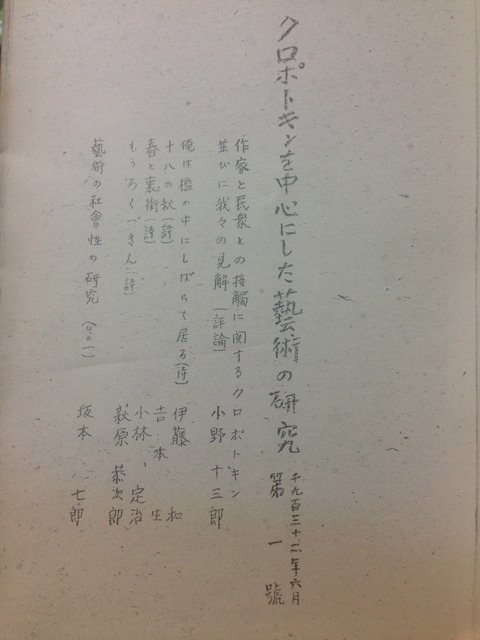 クロポトキンを中心にした藝術の研究
千九百三十二年六月
第一號
作家と民衆との接觸に関するクロポトキン
並びに我々の見解(評論)
小野十三郎
俺は檻の中にしばられて居る(詩)
伊藤和
十八の秋(詩)
吉本生
春と裏街(詩)
小林定治
もうろくづきん(詩)
萩原恭次郎
藝術の社會性の研究(その一)
坂本七郎